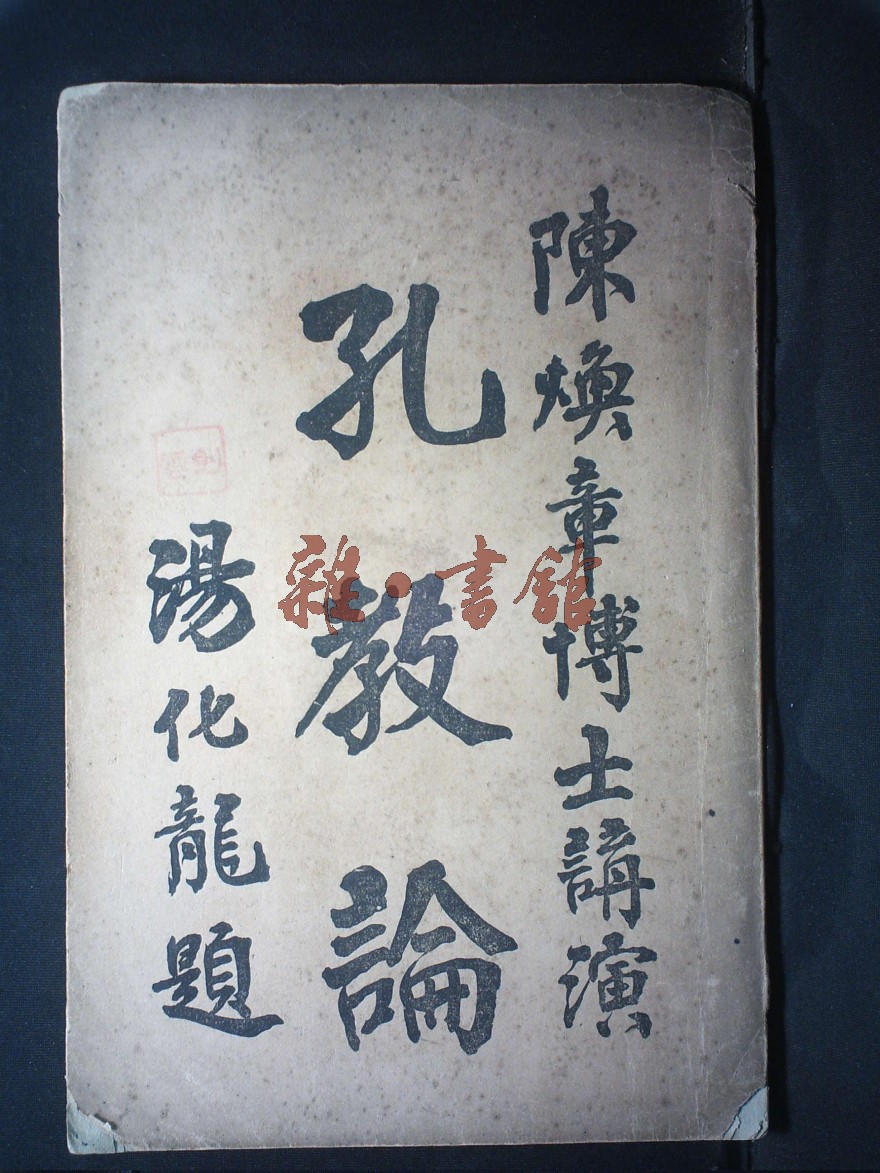 陳煥章博士講演
孔教論
湯化龍題
雜·書館